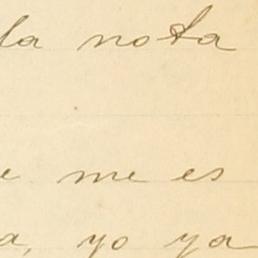 la nota
me es
a, yo ya